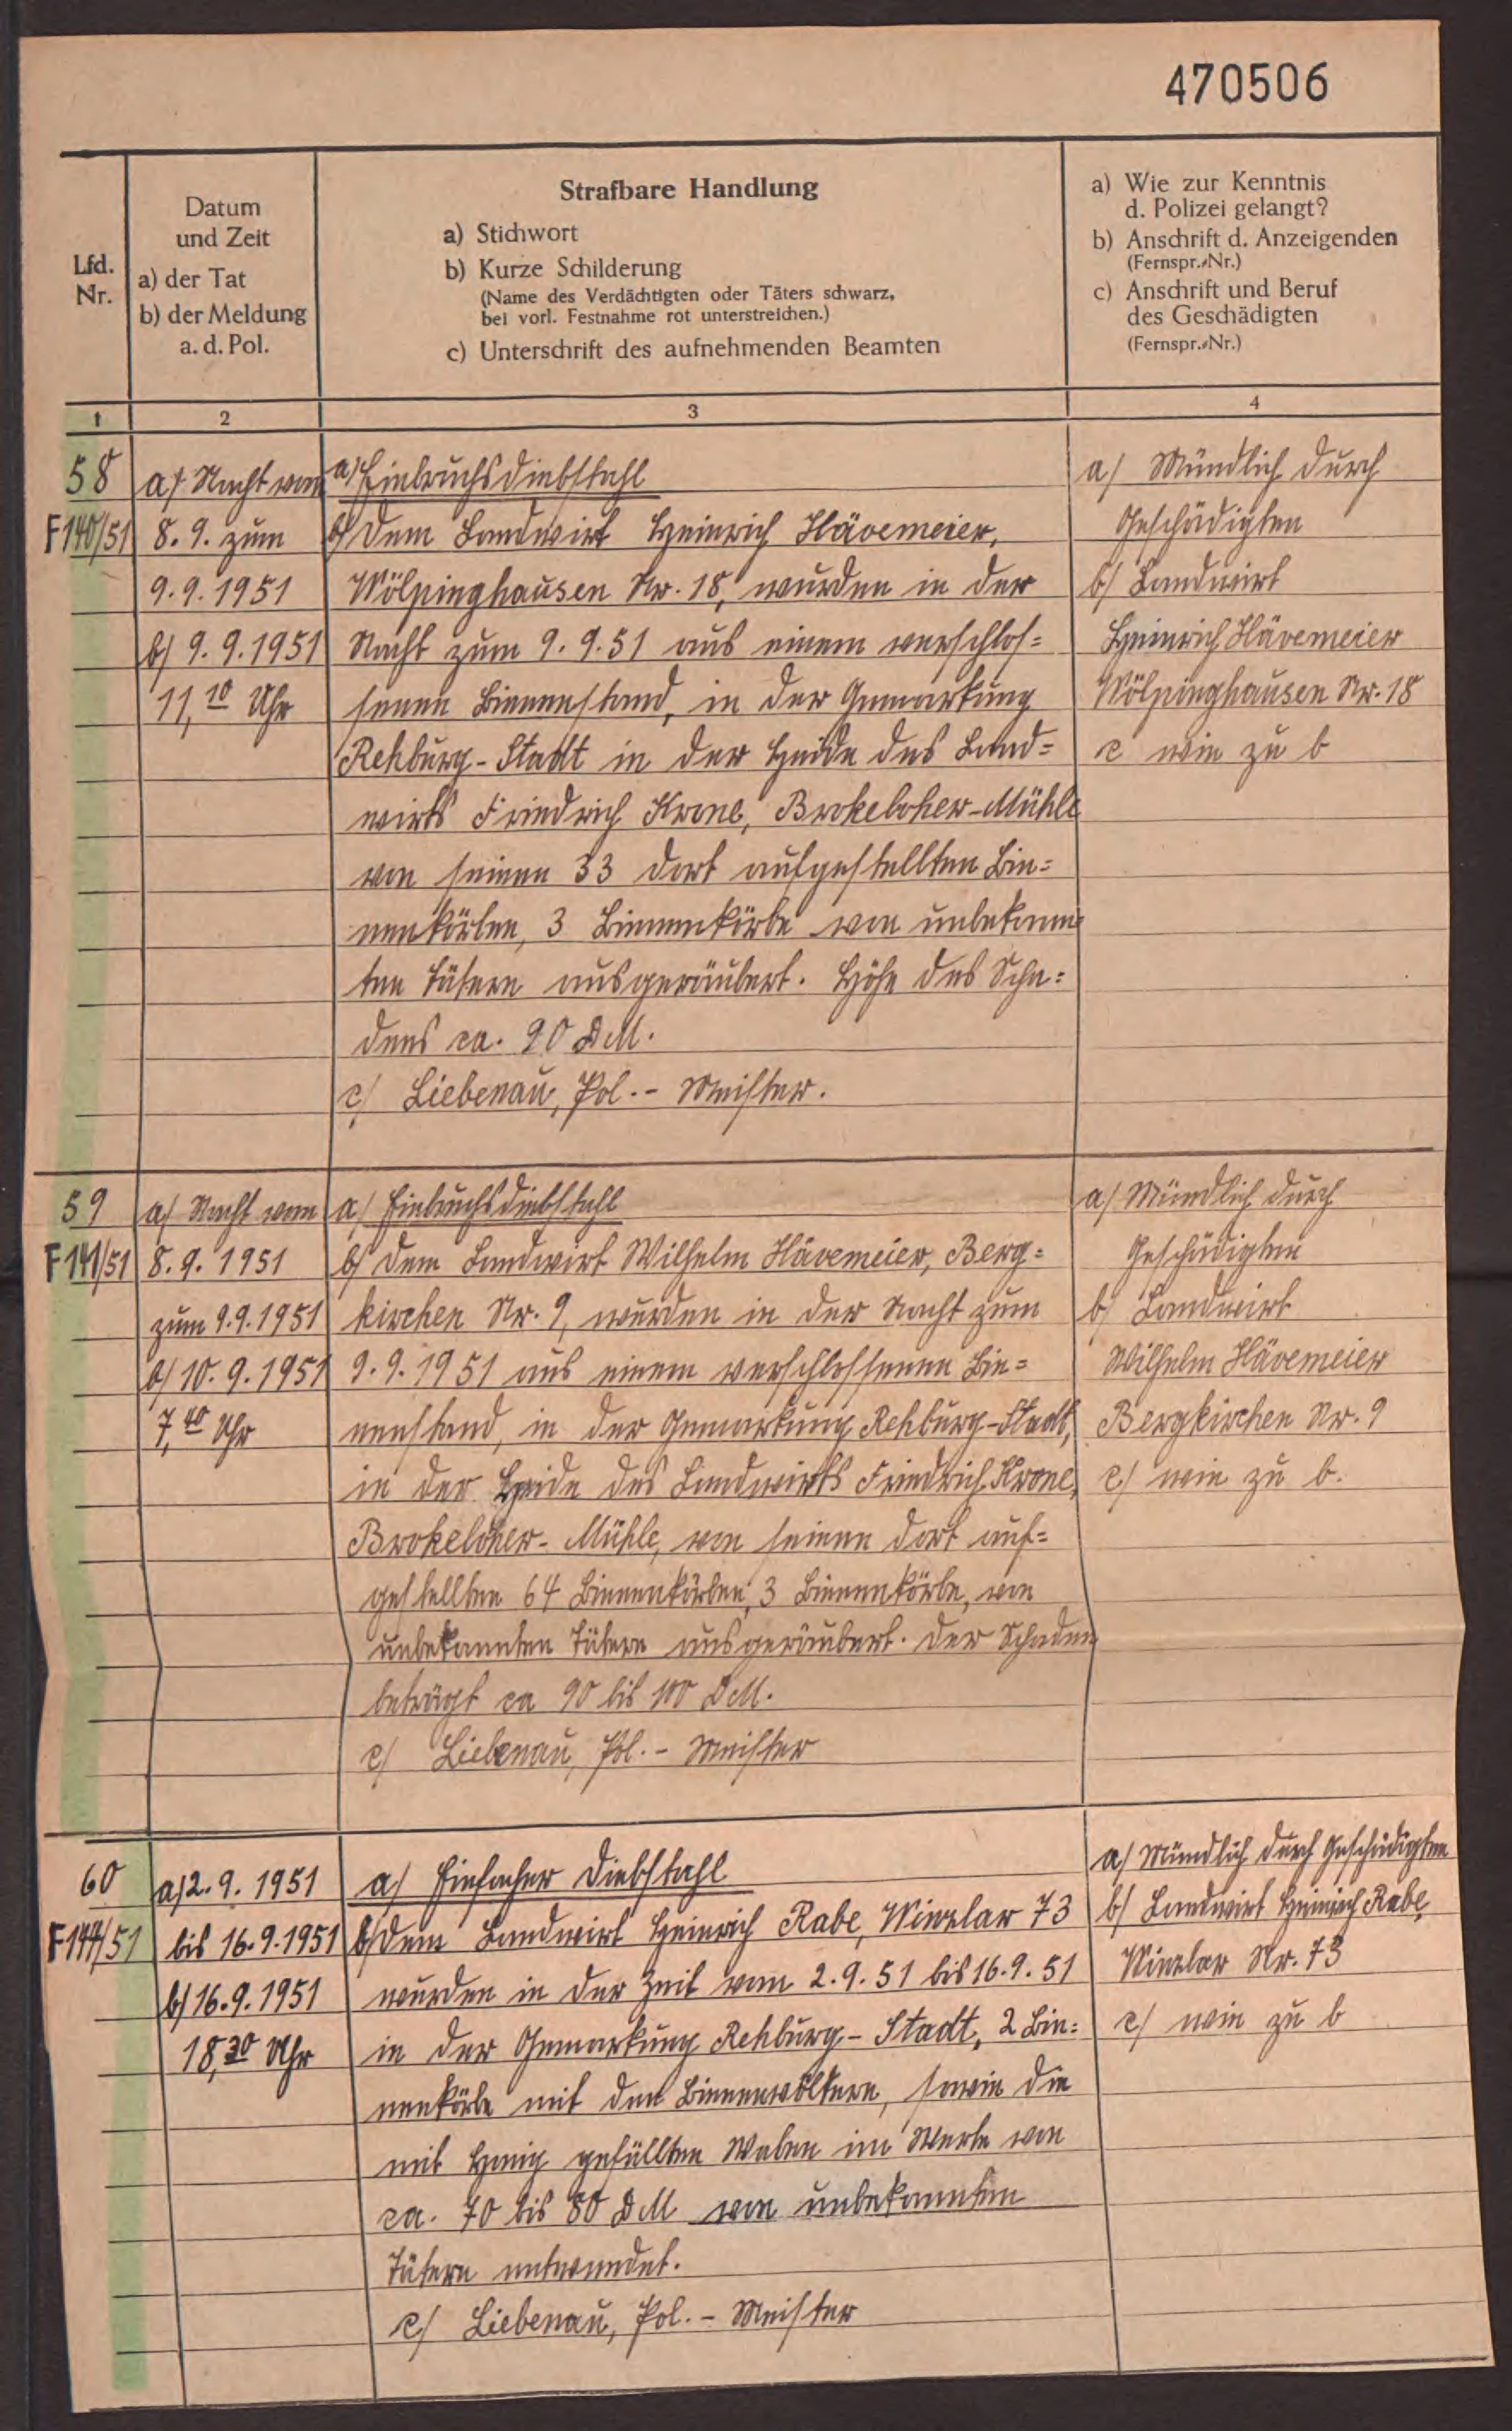 470506
Lfd.
Nr.
Datum
und Zeit
a) der Tat
b) der Meldung
a. d. Pol.
Strafbare Handlung
a) Stichwort
b) Kurze Schilderung
(Name des Verdächtigten oder Täters schwarz,
bei vorl. Festnahme rot unterstreichen.)
c) Unterschrift des aufnehmenden Beamten
a) Wie zur Kenntnis
d. Polizei gelangt?
b) Anschrift d. Anzeigenden
(Fernspr.-Nr.)
c) Anschrift und Beruf
des Geschädigten
(Fernspr.-Nr.)
1
2
3
4
58
F 140/51
a/ Nacht vom
8. 9. zum
9. 9. 1951
b/ 9. 9. 1951
11,10 Uhr
a/ Einbruchsdiebstahl
b/ Dem Landwirt Heinrich Hävemeier,
Wölpinghausen Nr. 18, wurden in der
Nacht zum 9. 9. 51 aus einem verschlos=
senen Bienenstand, in der Gemarkung
Rehburg-Stadt in der Heide des Land=
wirts Friedrich Krone, Brokeloher-Mühle
von seinen 33 dort aufgestellten Bie=
nenkörben, 3 Bienenkörbe von unbekann=
ten Tätern ausgeräubert. Höhe des Scha=
dens ca. 90 DM.
c/ Liebenau, Pol.- Meister.
a/ Mündlich durch
Geschädigten
b/ Landwirt
Heinrich Hävemeier
Wölpinghausen Nr. 18
c wie zu b
59
F 141/51
a/ Nacht vom
8. 9. 1951
zum 9. 9. 1951
b/ 10. 9. 1951
7,40 Uhr
a/ Einbruchsdiebstahl
b/ Dem Landwirt Wilhelm Hävemeier, Berg=
kirchen Nr. 9, wurden in der Nacht zum
9. 9. 1951 aus einem verschlossenen Bie=
nenstand, in der Gemarkung Rehburg-Stadt,
in der Heide des Landwirts Friedrich Krone,
Brokeloher- Mühle, von seinen dort auf=
gestellten 64 Bienenkörben, 3 Bienenkörbe, von
unbekannten Tätern ausgeräubert. Der Schaden
beträgt ca 90 bis 100 DM.
c/ Liebenau, Pol.- Meister
a/ Mündlich durch
Geschädigten
b/ Landwirt
Wilhelm Hävemeier
Bergkirchen Nr. 9
c/ wie zu b.
60
F 144/51
a/ 2. 9. 1951
bis 16. 9. 1951
b/ 16. 9. 1951
18,30 Uhr
a/ Einfacher Diebstahl
b/ Dem Landwirt Heinrich Rabe, Winzlar 73
wurden in der Zeit vom 2. 9. 51 bis 16. 9. 51
in der Gemarkung Rehburg- Stadt, 2 Bie=
nenkörbe mit den Bienenvölkern, sowie die
mit Honig gefüllten Waben im Werte von
ca. 70 bis 80 DM von unbekannten
Tätern entwendet.
c/ Liebenau, Pol.- Meister
a/ Mündlich durch Geschädigten
b/ Landwirt Heinrich Rabe,
Winzlar Nr. 73
c/ wie zu b